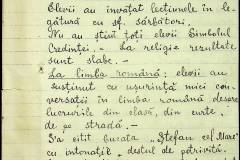 Elevii au învățat lecțiunele în le-
gătură cu sf. sărbători.
Nu au știut toți elevii Simbolul
Credinței. - La religie rezultate
sunt slabe. -
La limba română: elevii au
susținut cu ușurință mici con-
versații în limba română despre
lucrurile din clasă, din curte,
de pe stradă -
S'a citit bucata „Ștefan cel Mare"
cu intonație destul de potrivită.